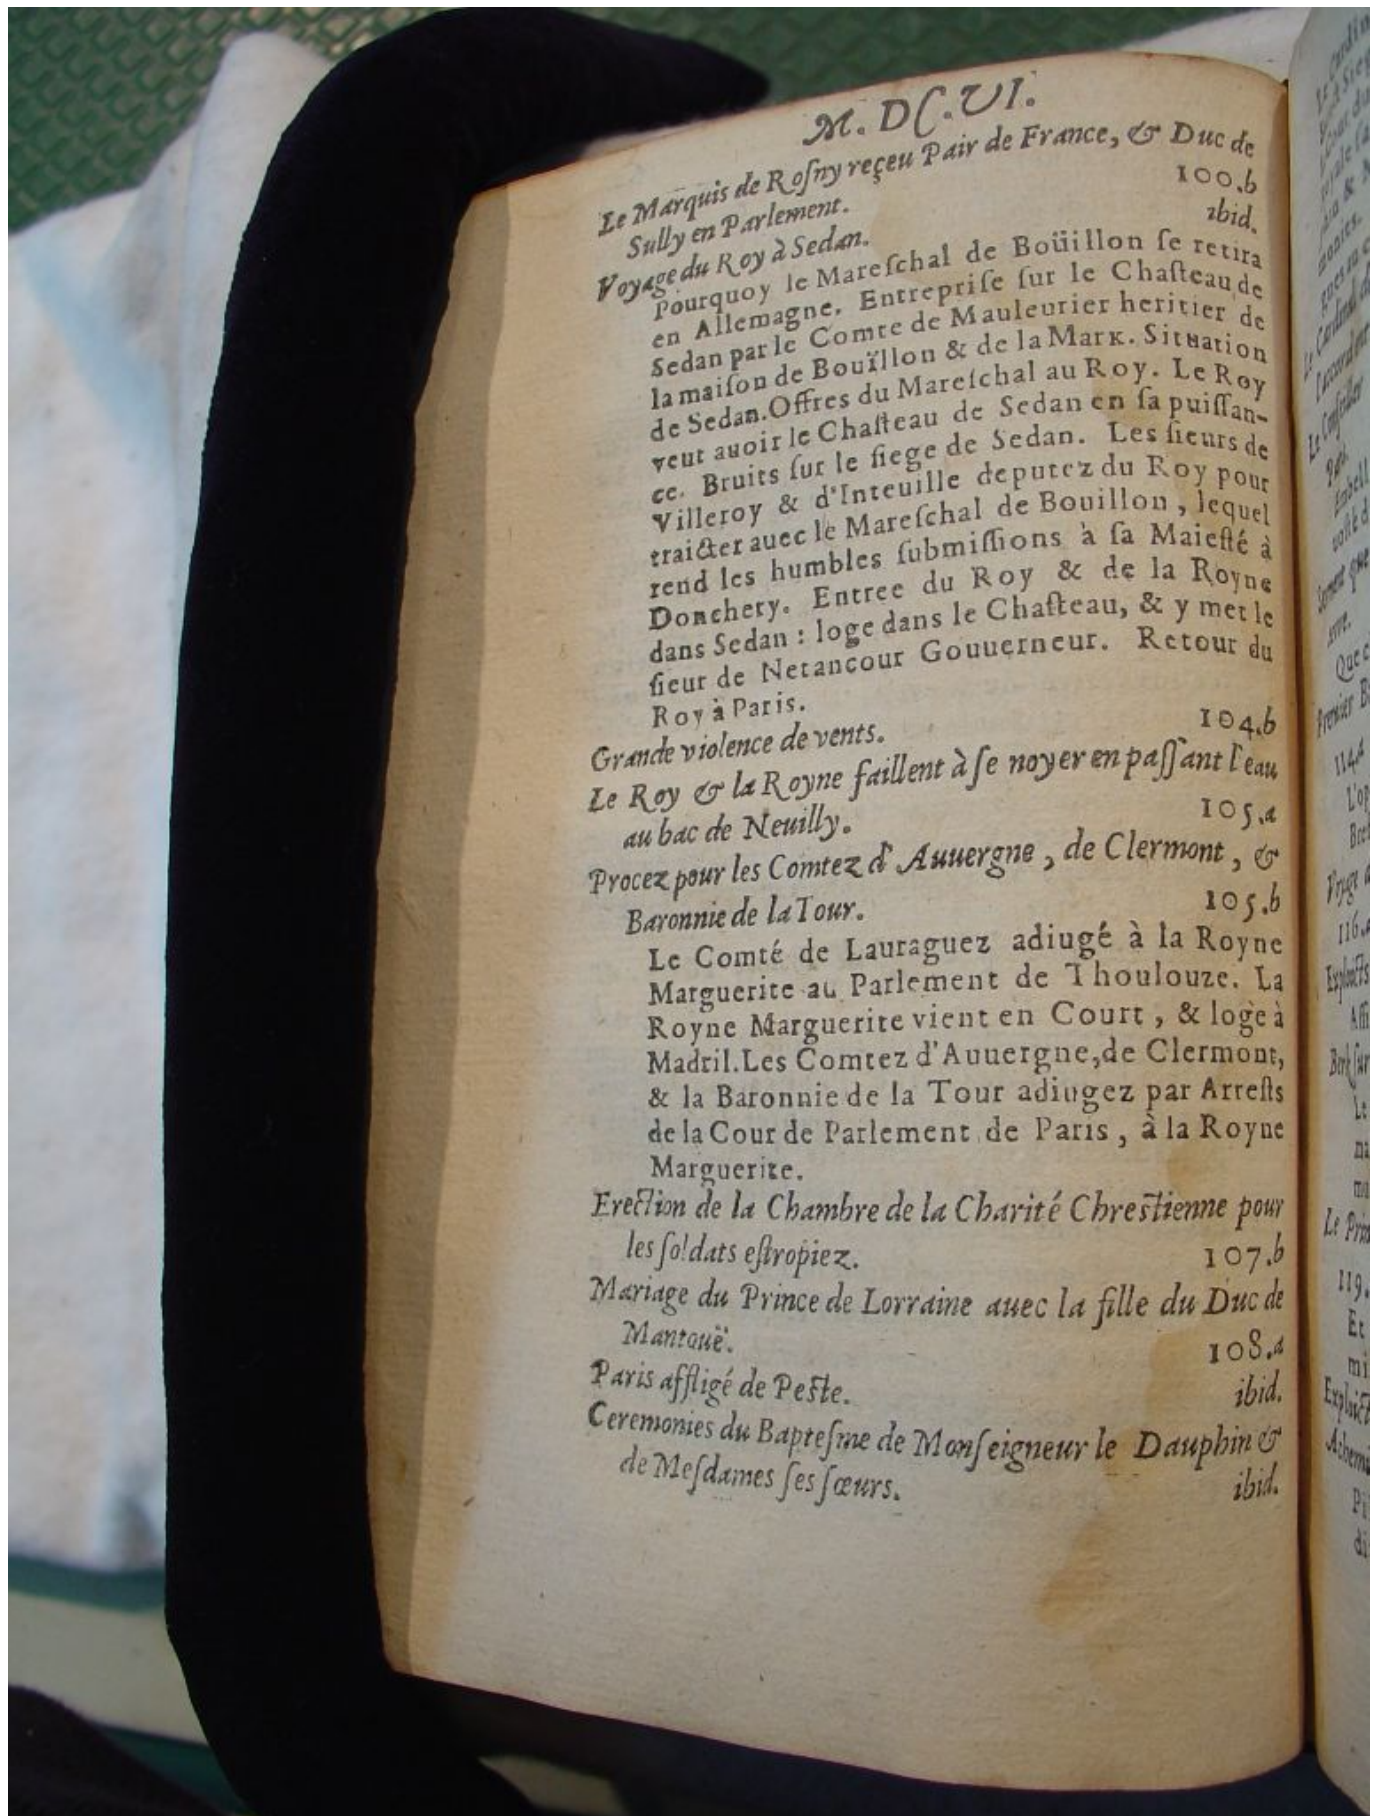 M. DC. VI.
Le Marquis de Roſny reçeu Pair de France, & Duc de
Sully en Parlement. 100.b
Voyage du Roy à Sedan. ibid.
Pourquoy le Mareſchal de Boüillon ſe retira
en Allemagne. Entrepriſe ſur le Chaſteau de
Sedan par le Comte de Mauleurier heritier de
la maiſon de Bouïllon & de la Mark. Situation
de Sedan. Offres du Mareſchal au Roy. Le Roy
veut auoir le Chaſteau de Sedan en ſa puiſſan-
ce. Bruits ſur le ſiege de Sedan. Les ſieurs de
Villeroy & d'Inteuille deputez du Roy pour
traicter auec le Mareſchal de Bouillon, lequel
rend les humbles ſubmiſſions à ſa Maieſté à
Donchery. Entree du Roy & de la Royne
dans Sedan : loge dans le Chaſteau, & y met le
ſieur de Netancour Gouuerneur. Retour du
Roy à Paris.
Grande violence de vents. 104.b
Le Roy & la Royne faillent à ſe noyer en paſſant l'eau
au bac de Neuilly. 105.a
Procez pour les Comtez d'Auuergne, de Clermont, &
Baronnie de la Tour. 105.b
Le Comté de Lauraguez adiugé à la Royne
Marguerite au Parlement de Thoulouze. La
Royne Marguerite vient en Court, & loge à
Madril. Les Comtez d'Auuergne, de Clermont,
& la Baronnie de la Tour adiugez par Arreſts
de la Cour de Parlement de Paris, à la Royne
Marguerite.
Erection de la Chambre de la Charité Chreſtienne pour
les ſoldats eſtropiez. 107.b
Mariage du Prince de Lorraine auec la fille du Duc de
Mantouë. 108.a
Paris affligé de Peſte. ibid.
Ceremonies du Bapteſme de Monſeigneur le Dauphin &
de Meſdames ſes ſœurs. ibid.